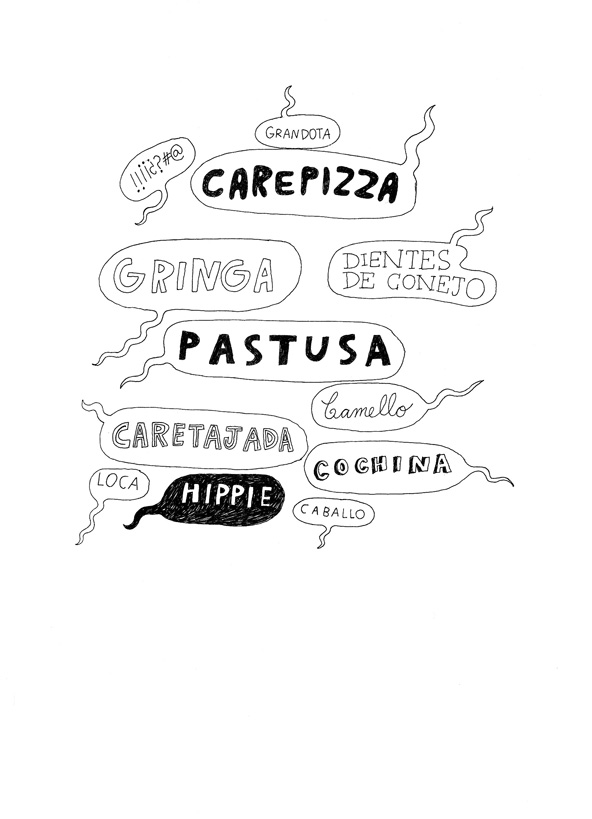 GRANDOTA
!!¡¡¿?#@
CAREPIZZA
GRINGA
DIENTES
DE CONEJO
PASTUSA
Camello
CARETAJADA
COCHINA
LOCA
HIPPIE
CABALLO